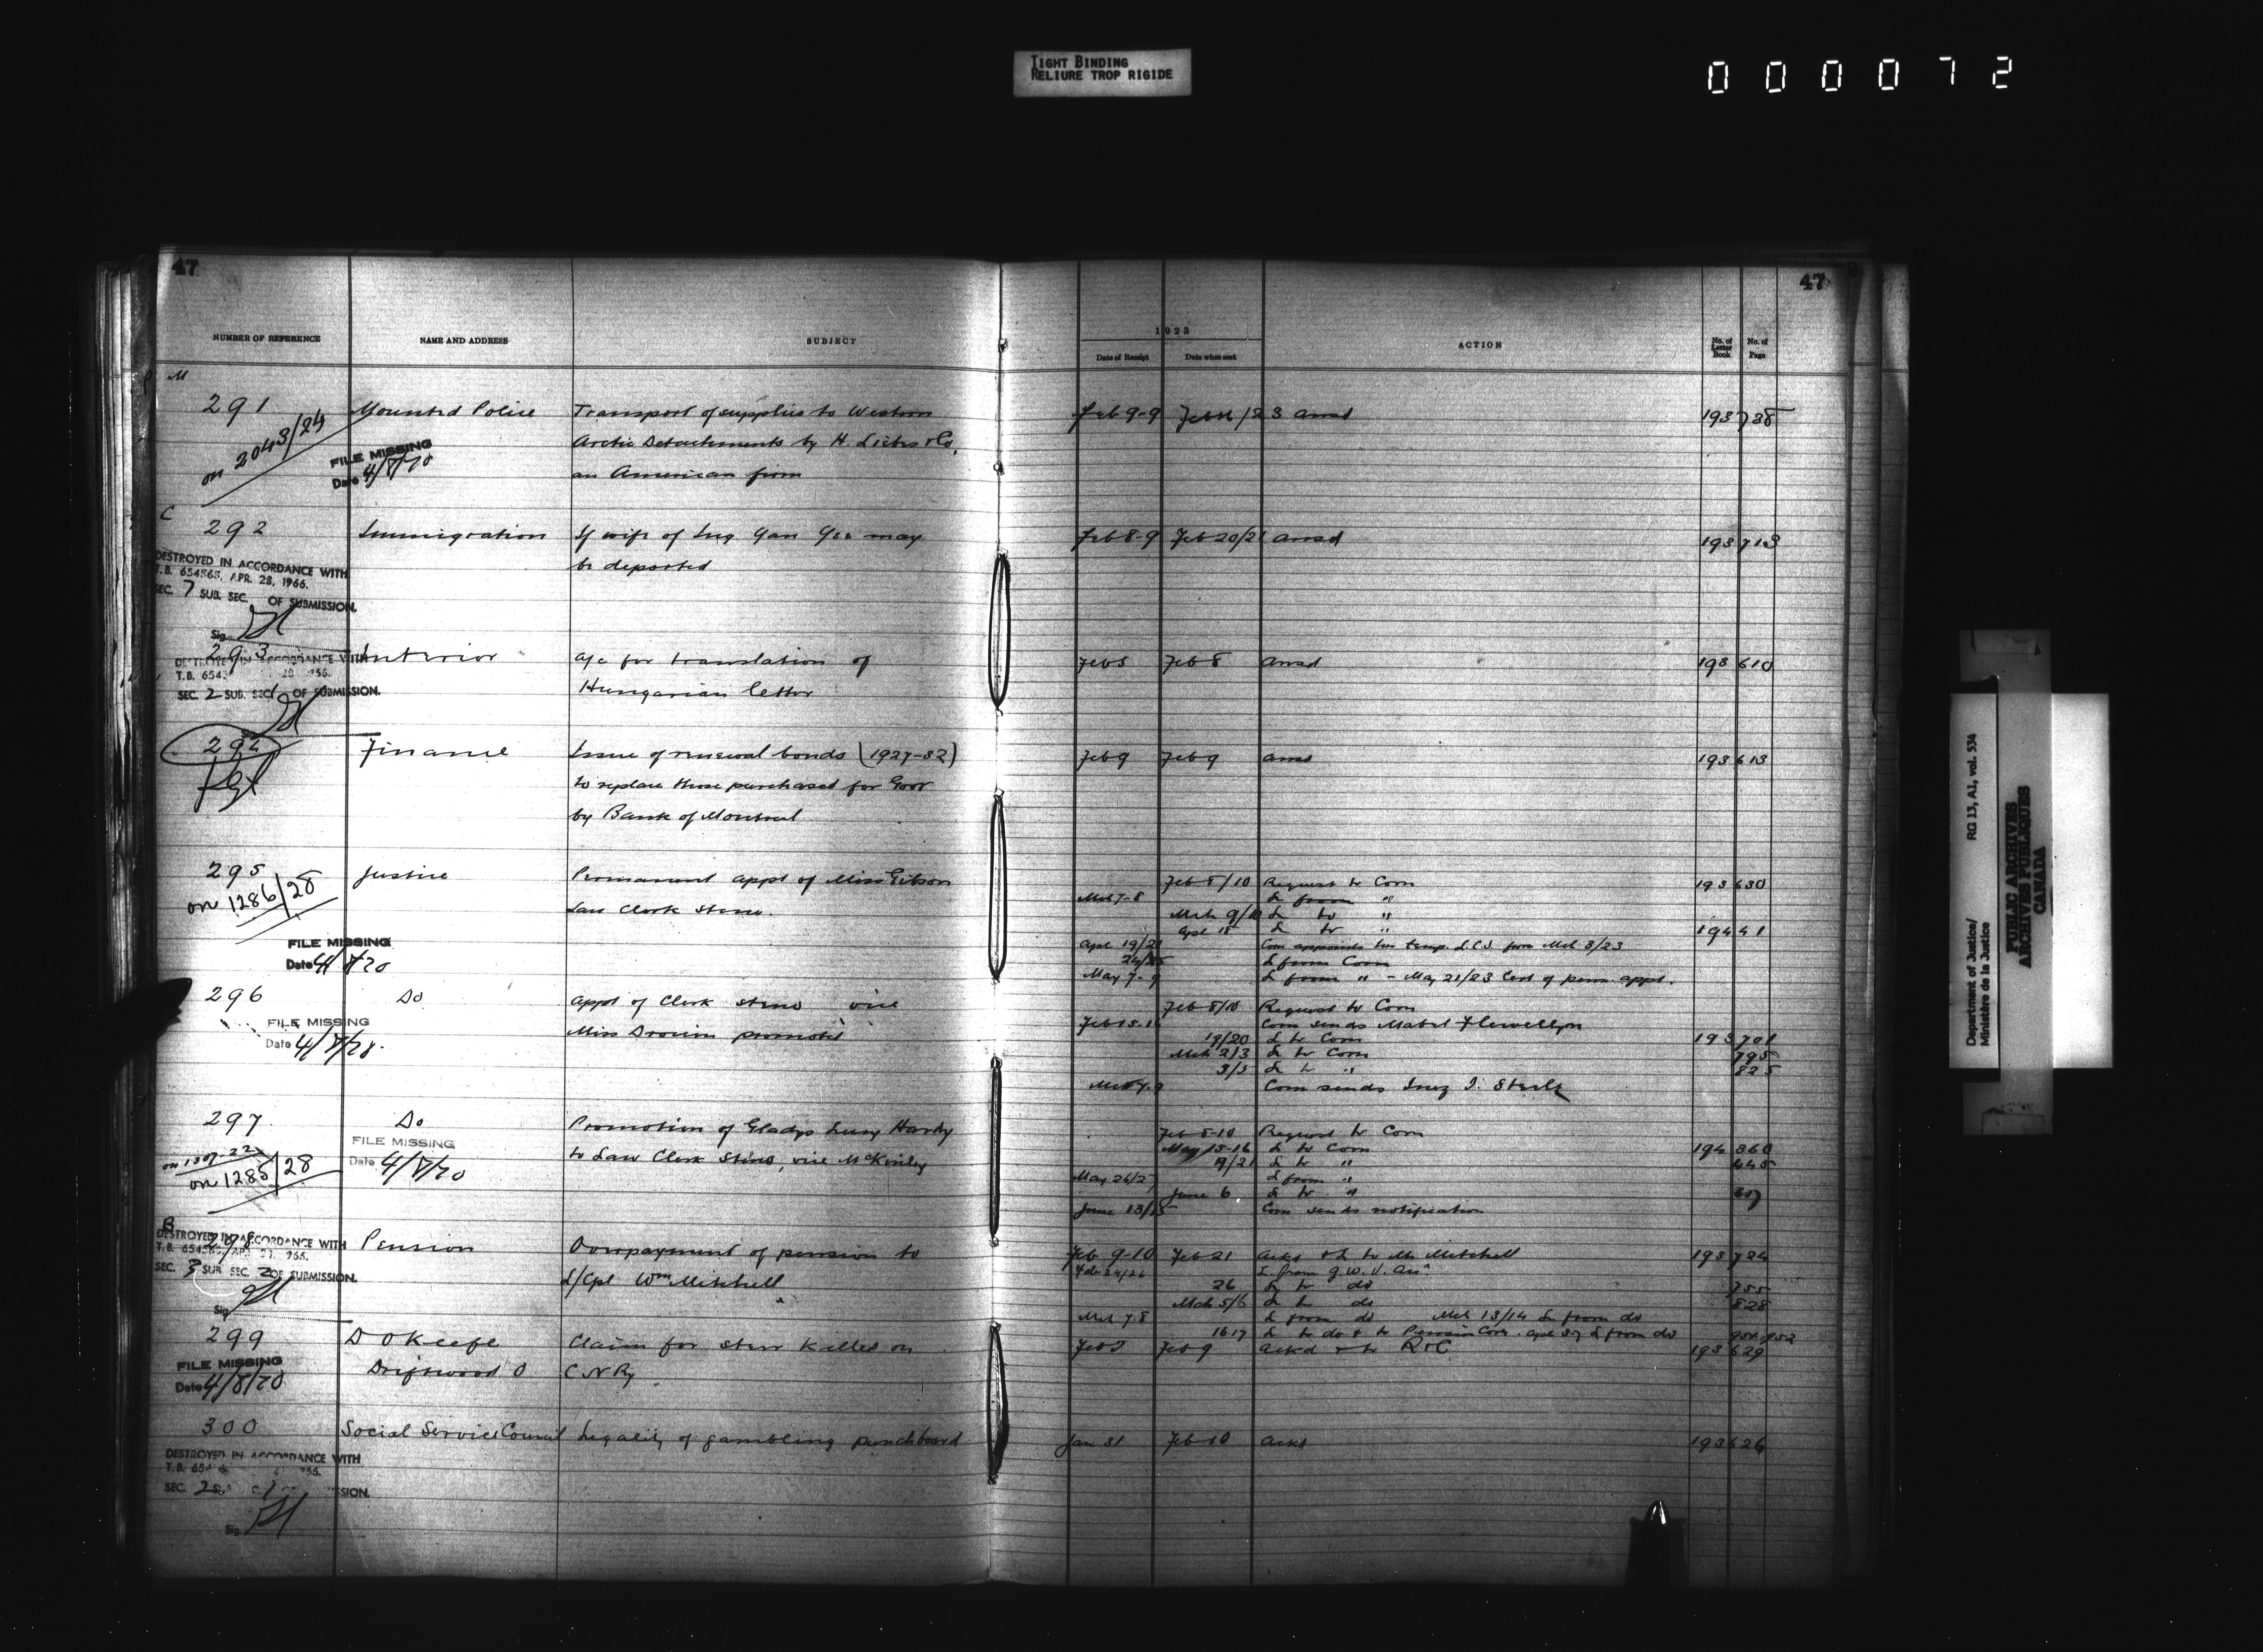 TIGHT BINDING
RELIURE TROP RIGIDE
0 0 0 0 7 2
47
47
NUMBER OF REFERENCE NAME AND ADDRESS SUBJECT
1923
Date of Receipt Date when sent ACTION No. of Letter Book No. of Page
M
291 Mounted Police Transport of supplies to Western Feb 9-9 ansd 193 738
on 2043/24 Arctic Detachments by H. Liebes & Co.
FILE MISSING
Date 4/8/70 an American firm
C
292 Immigration If wife of may Feb 8-9 Feb 20/21 ansd 193 713
be deported
DESTROYED IN ACCORDANCE WITH
T.B. 654565, APR. 28, 1966.
SEC. 7 SUB. SEC. OF SUBMISSION.
Sig.
293 Interior a/c for translation of Feb 8 ansd 193 610
Hungarian letter
DESTROYED IN ACCORDANCE WITH
T.B. 654
SEC. 2 SUB. SEC. 1 OF SUBMISSION.
Sig.
294 Finance Issue of renewal bonds (1927-32) Feb 9 Feb 9 ansd 193 613
to replace those purchased for Govr
by Bank of Montreal
295 Justice Permanent appt of Miss Gibson Feb 8/10 Request to Com 193 630
on 1286/28 Law Clerk Steno. Mch 7-8 L from "
Mch 9/10 L to "
Apl 18 L to " 194 41
FILE MISSING
Date 4/8/70
Apl 19/21 Com appoints her temp. L.C.S. from Mch 8/23
24/25 L from Com
May 7-9 L from " - May 21/23 Cert of perm. appt.
296 Do appt of Clerk Steno vice Feb 8/10 Request to Com
Miss Drouin promoted Feb 15-16 Com sends Mabel Flewellyn
FILE MISSING
Date 4/8/70
19/20 L to Com 193 701
Mch 2/3 L to Com 795
3/5 L to " 825
Mch 7-9 Com sends Inez I. Steele
297 Do Promotion of Gladys Lucy Hardy Feb 8-10 Request to Com
on 1307-22
on 1285/28
FILE MISSING
Date 4/8/70
to Law Clerk Steno, vice McKinley May 15-16 L to Com 194 360
/21 L to " 445
May 26/27 L from "
June 6 L to "
June 13/15 Com sends notification
B
298 Pension Overpayment of pension to Feb 9-10 Feb 21 ackd & L to Mr Mitchell 193 724
L/Cpl Wm Mitchell Feb 24/26 L from G.W.V. Assn
DESTROYED IN ACCORDANCE WITH
SEC. 3 SUB. SEC. 2 OF SUBMISSION.
Sig.
26 L to do 755
Mch 5/6 L to do 828
Mch 7.8 L from do Mch 13/14 L from do
16.17 L to do & to Pension Com. L from do
299 D OKeefe Claim for steer killed on Feb 9 ackd & to R&C 193 629
Driftwood O C N Ry
FILE MISSING
Date 4/8/70
300 Social Service Council Legality of gambling punchboard Jan 31 Feb 10 ackd 193 626
DESTROYED IN ACCORDANCE WITH
Sig.
Department of Justice/ RG 13, A1, vol. 534
Ministère de la Justice
PUBLIC ARCHIVES
ARCHIVES PUBLIQUES
CANADA